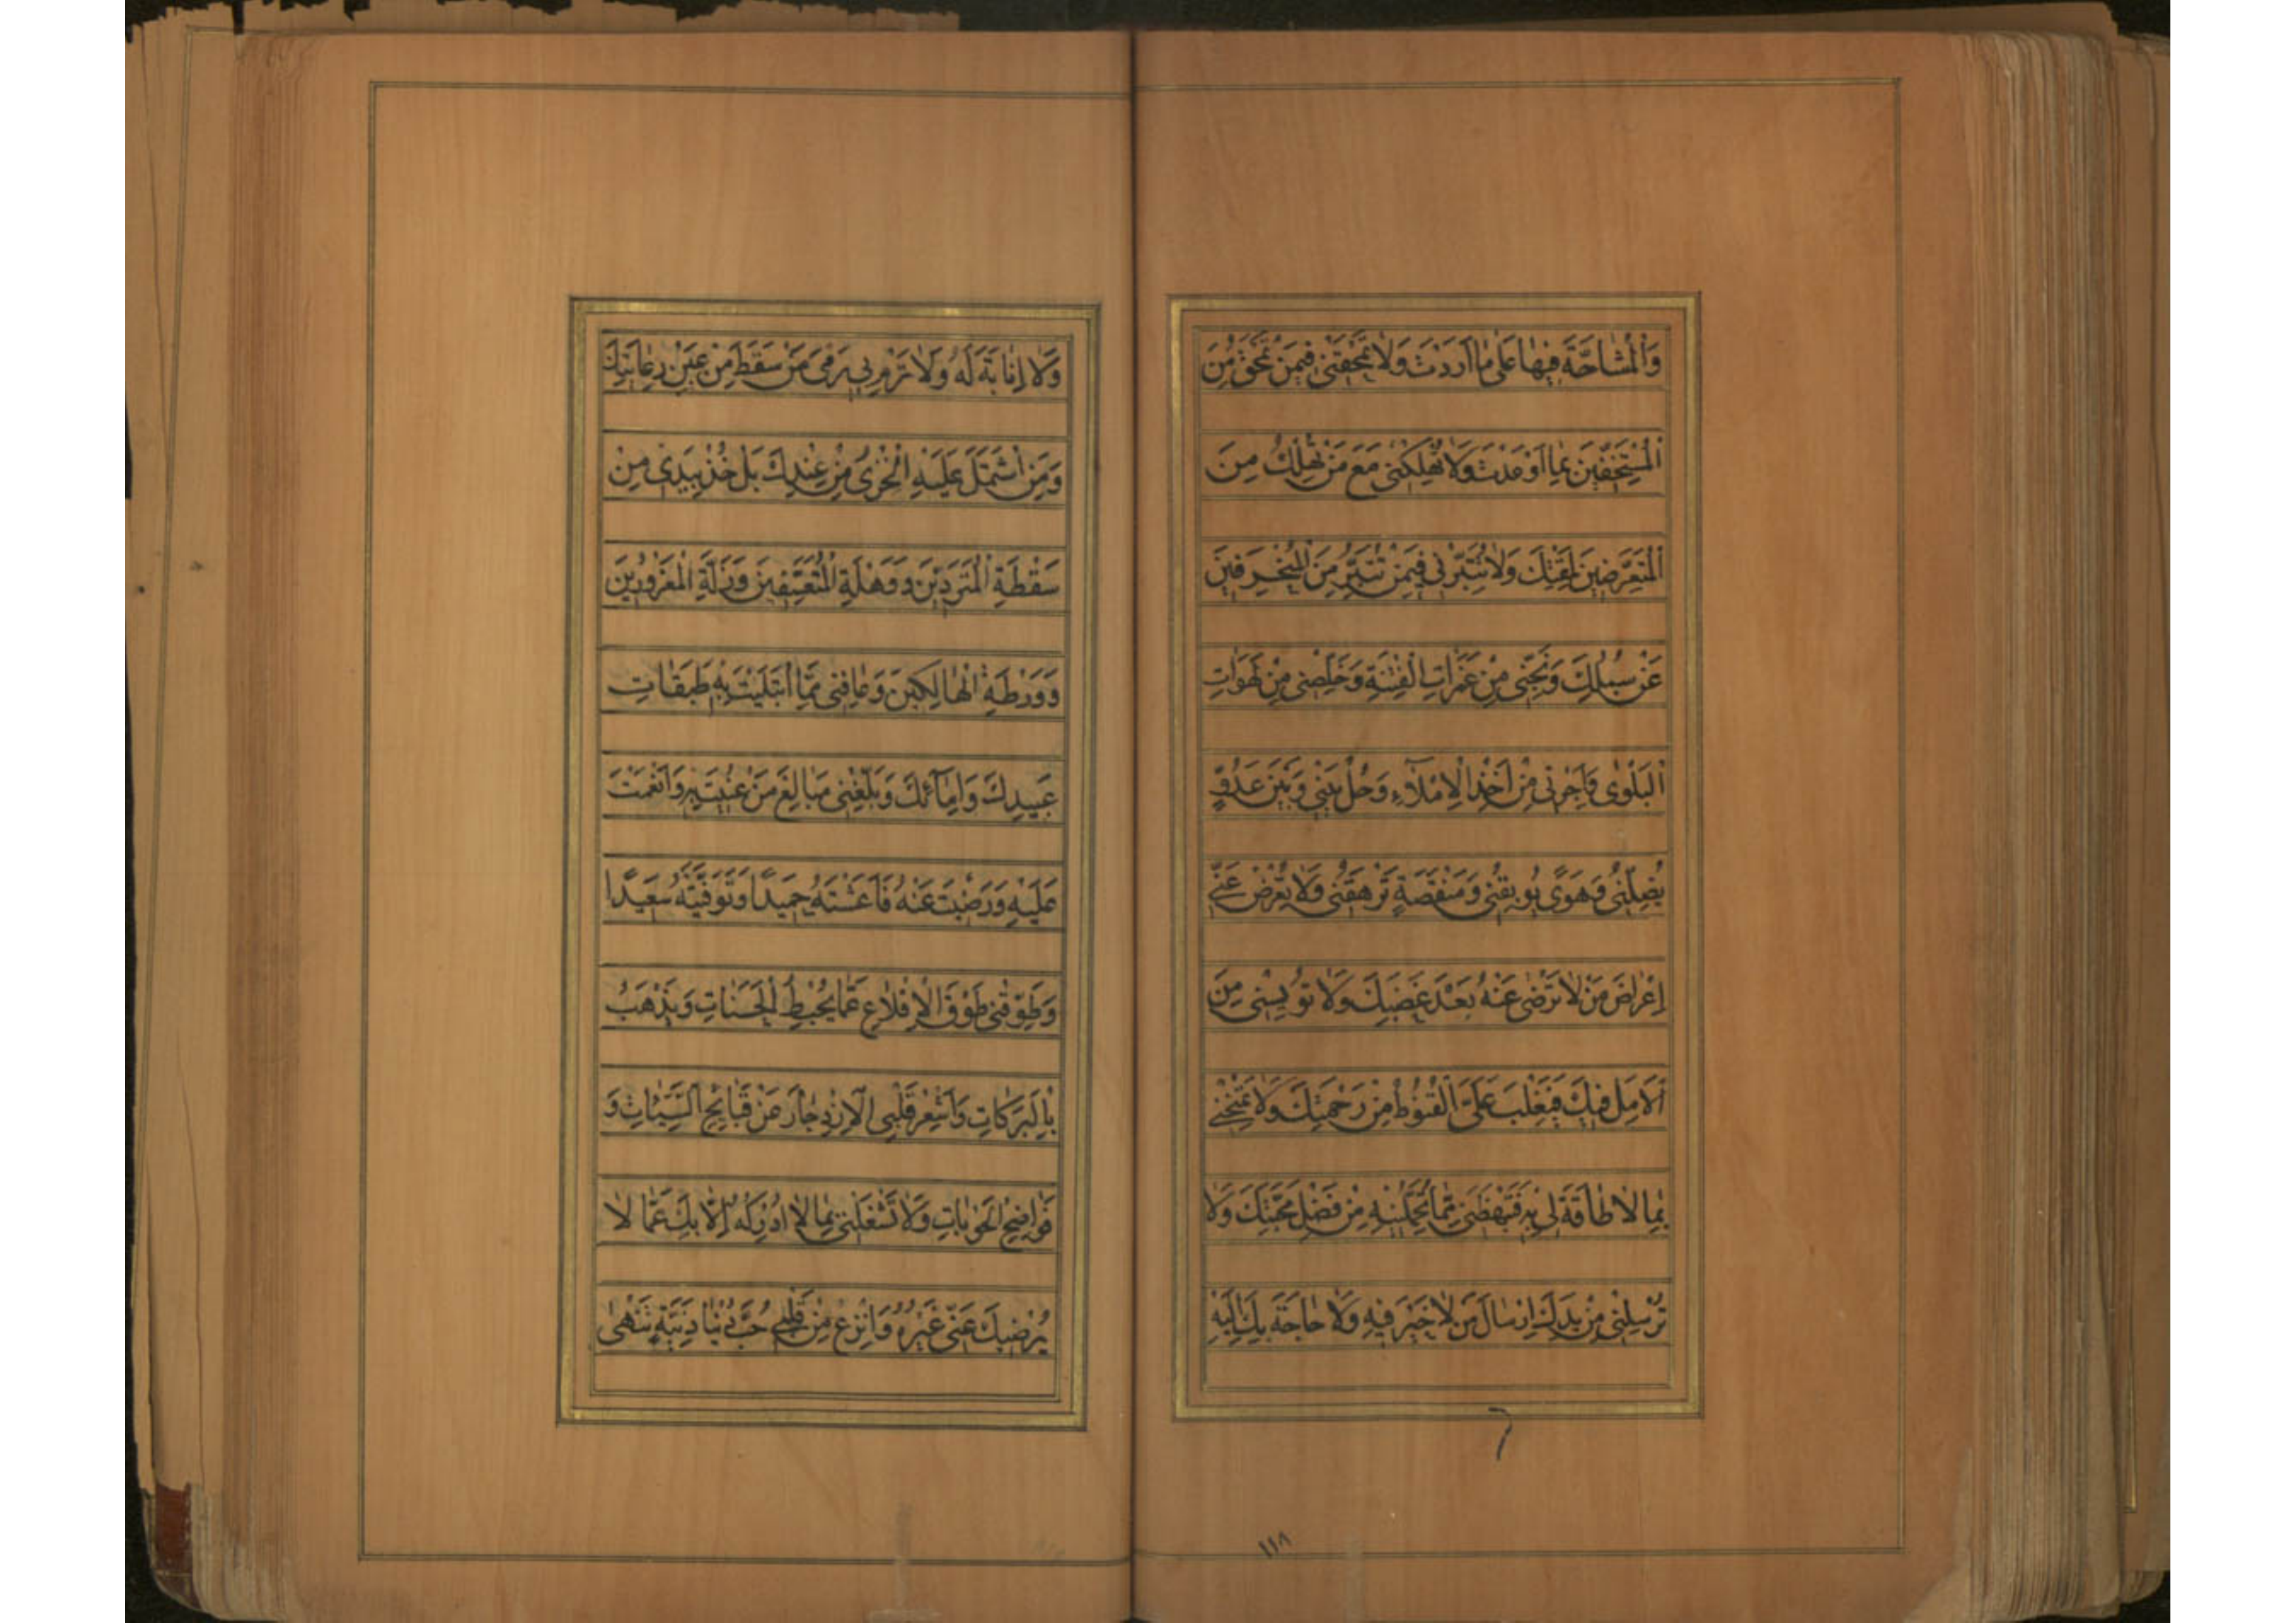 وَالْمُشَاحَّةَ فِيهَا عَلَى مَا أَرَدْتَ وَلَا تَمْحَقَنِّي فِيمَنْ تَمْحَقُ مِنَ
الْمُسْتَخِفِّينَ بِمَا أَوْعَدْتَ وَلَا تُهْلِكْنِي مَعَ مَنْ تُهْلِكُ مِنَ
الْمُتَعَرِّضِينَ لِمَقْتِكَ وَلَا تُتَبِّرْنِي فِيمَنْ تُتَبِّرُ مِنَ الْمُنْحَرِفِينَ
عَنْ سُبُلِكَ وَنَجِّنِي مِنْ غَمَرَاتِ الْفِتْنَةِ وَخَلِّصْنِي مِنْ لَهَوَاتِ
الْبَلْوَى وَأَجِرْنِي مِنْ أَخْذِ الْإِمْلَاءِ وَحُلْ بَيْنِي وَبَيْنَ عَدُوٍّ
يُضِلُّنِي وَهَوًى يُوبِقُنِي وَمَنْقَصَةٍ تَرْهَقُنِي وَلَا تُعْرِضْ عَنِّي
إِعْرَاضَ مَنْ لَا تَرْضَى عَنْهُ بَعْدَ غَضَبِكَ وَلَا تُؤْيِسْنِي مِنَ
الْأَمَلِ فِيكَ فَيَغْلِبَ عَلَيَّ الْقُنُوطُ مِنْ رَحْمَتِكَ وَلَا تَمْتَحِنِّي
بِمَا لَا طَاقَةَ لِي بِهِ فَتَبْهَظَنِي مِمَّا تُحَمِّلُنِيهِ مِنْ فَضْلِ مَحَبَّتِكَ وَلَا
تُرْسِلْنِي مِنْ يَدِكَ إِرْسَالَ مَنْ لَا خَيْرَ فِيهِ وَلَا حَاجَةَ بِكَ إِلَيْهِ
١١٨
وَلَا إِنَابَةَ لَهُ وَلَا تَرْمِ بِي رَمْيَ مَنْ سَقَطَ مِنْ عَيْنِ رِعَايَتِكَ
وَمَنِ اشْتَمَلَ عَلَيْهِ الْخِزْيُ مِنْ عِنْدِكَ بَلْ خُذْ بِيَدِي مِنْ
سَقْطَةِ الْمُتَرَدِّينَ وَوَهْلَةِ الْمُتَعَسِّفِينَ وَزَلَّةِ الْمَغْرُورِينَ
وَوَرْطَةِ الْهَالِكِينَ وَعَافِنِي مِمَّا ابْتَلَيْتَ بِهِ طَبَقَاتِ
عَبِيدِكَ وَإِمَائِكَ وَبَلِّغْنِي مَبَالِغَ مَنْ عُنِيتَ بِهِ وَأَنْعَمْتَ
عَلَيْهِ وَرَضِيتَ عَنْهُ فَأَعَشْتَهُ حَمِيدًا وَتَوَفَّيْتَهُ سَعِيدًا
وَطَوِّقْنِي طَوْقَ الْإِقْلَاعِ عَمَّا يُحْبِطُ الْحَسَنَاتِ وَيَذْهَبُ
بِالْبَرَكَاتِ وَأَشْعِرْ قَلْبِيَ الْإِزْدِجَارَ عَنْ قَبَائِحِ السَّيِّئَاتِ وَ
فَوَاضِحِ الْحَوْبَاتِ وَلَا تَشْغَلْنِي بِمَا لَا أُدْرِكُهُ إِلَّا بِكَ عَمَّا لَا
يُرْضِيكَ عَنِّي غَيْرُهُ وَانْزِعْ مِنْ قَلْبِي حُبَّ دُنْيَا دَنِيَّةٍ تَنْهَى